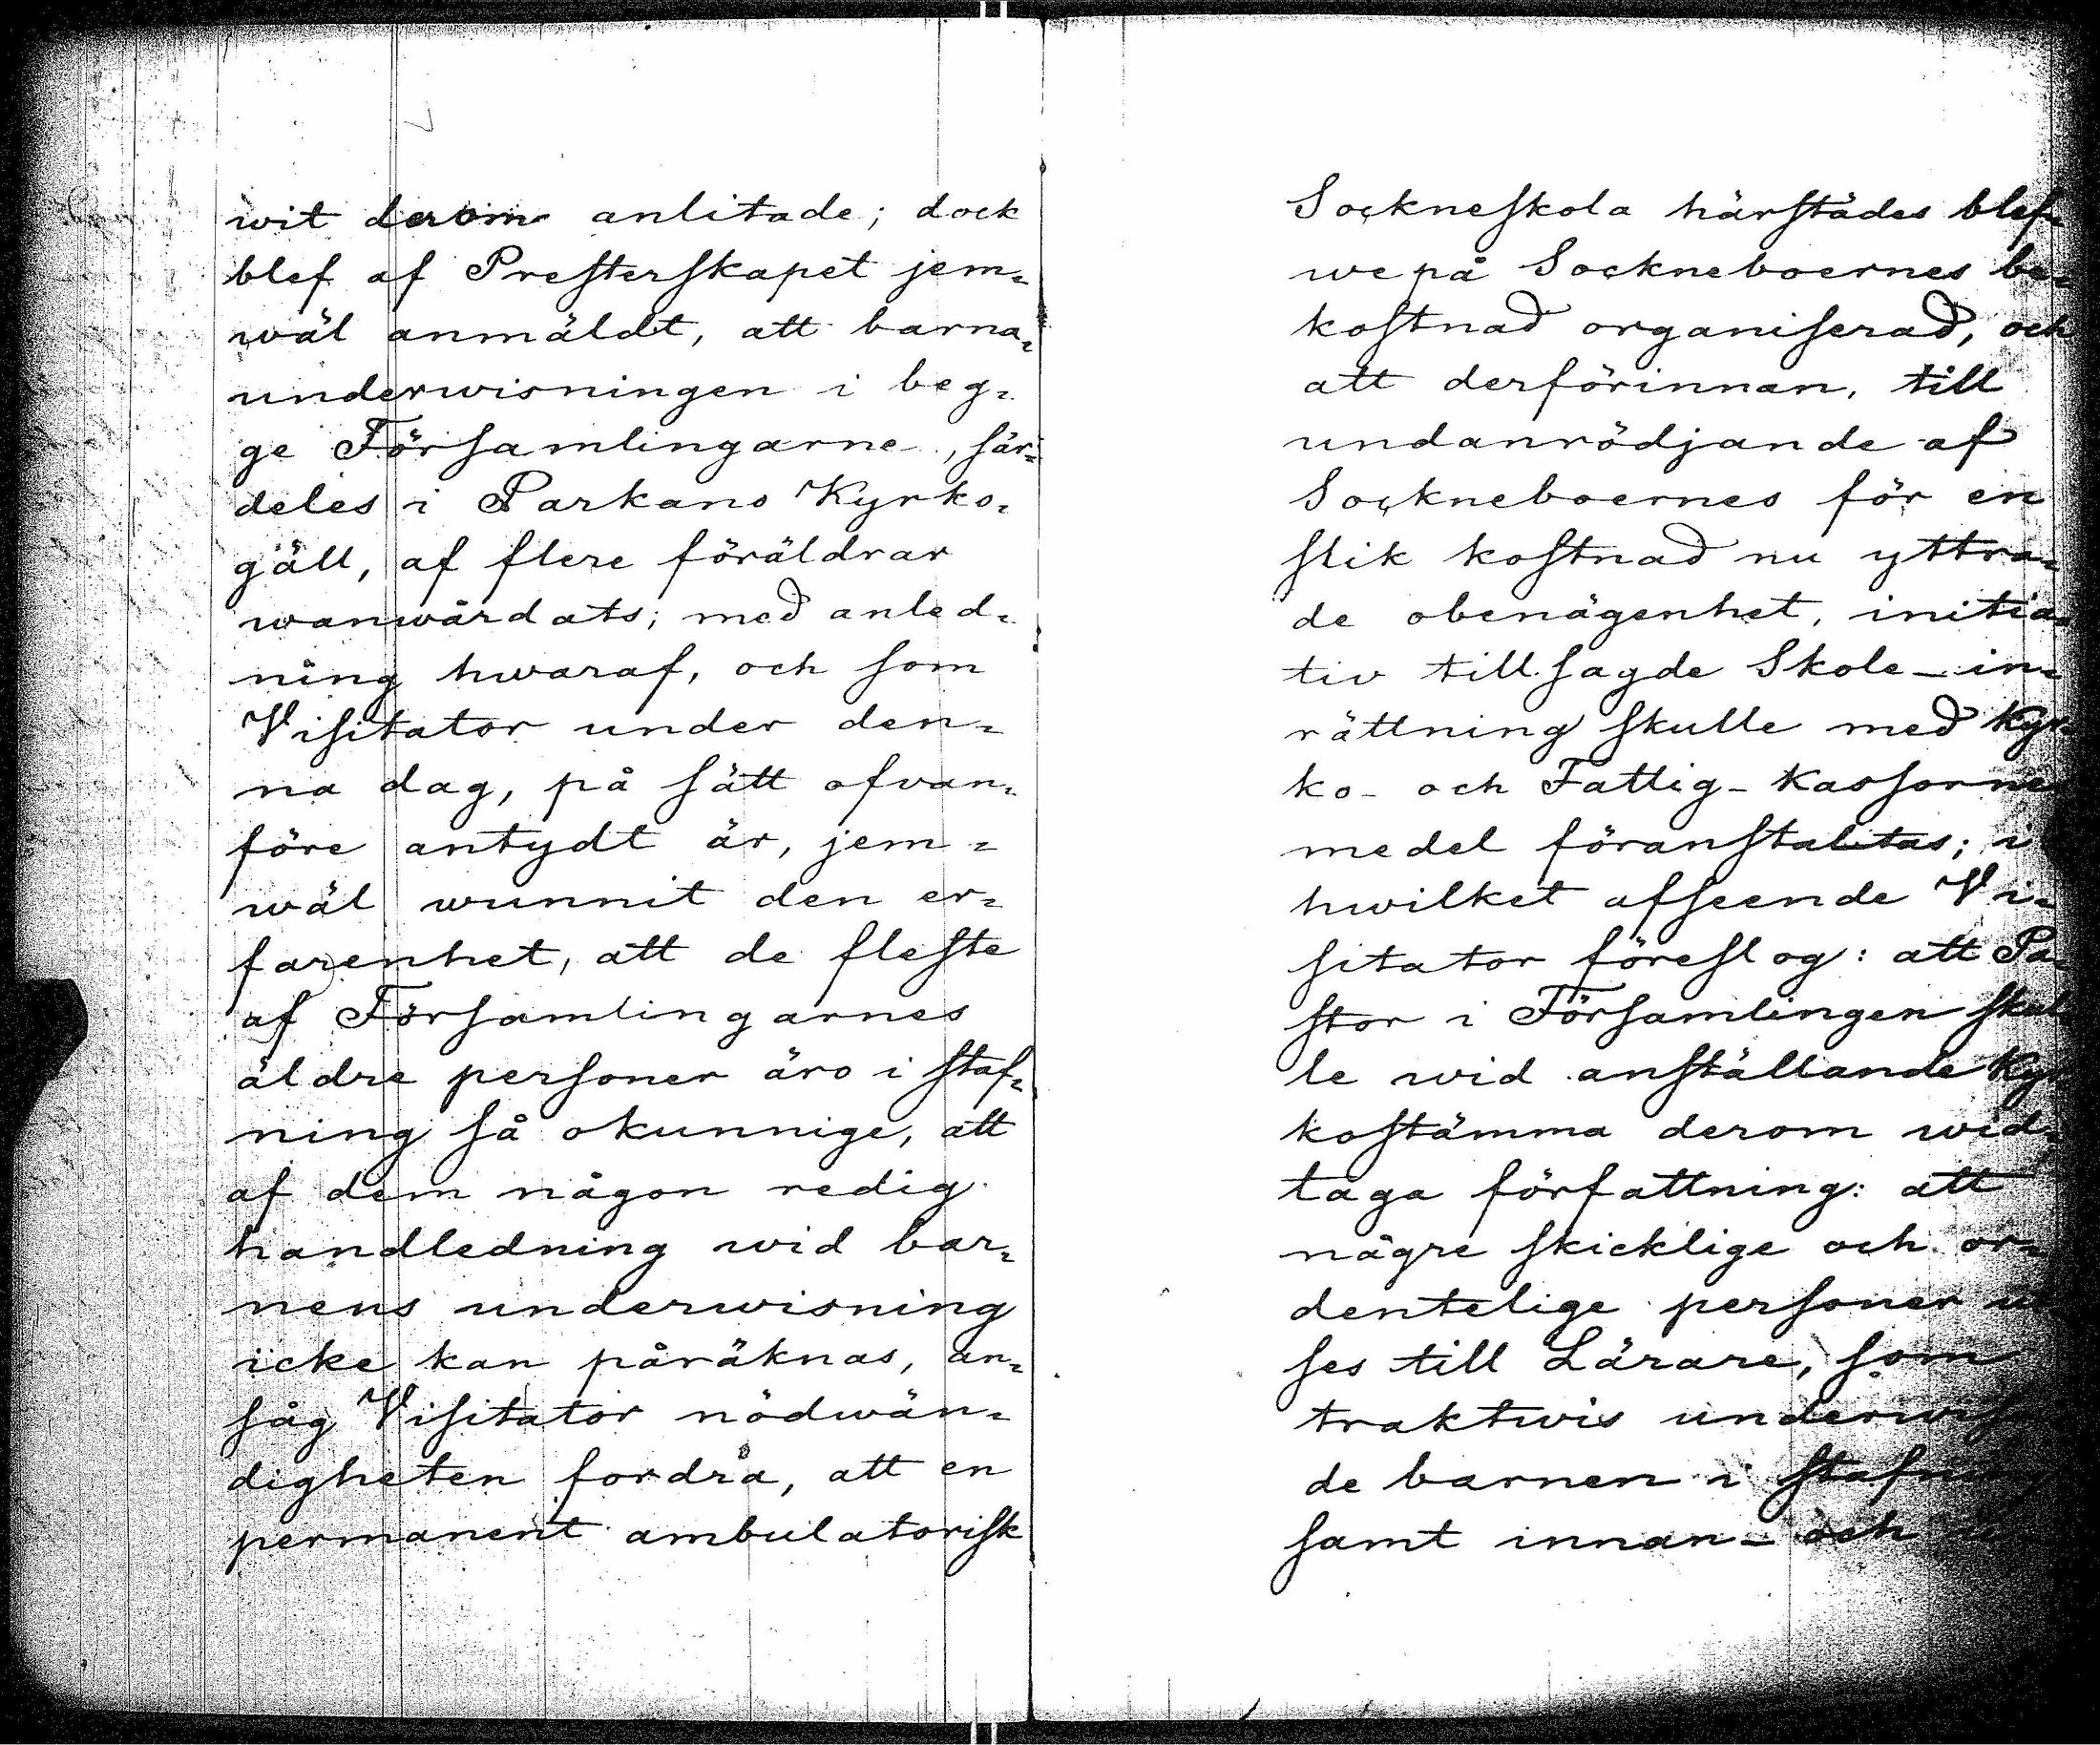 wit derom anlitade; dock
blef af Presterskapet jem=
wäl anmäldt, att barna=
underwisningen i beg=
ge Församlingarne, sär=
deles i Parkano Kyrko=
gäll, af flere föräldrar
wanwårdats; med anled=
ning hwaraf, och som
Visitator under den=
na dag, på sätt ofvan=
före antydt är, jem=
wäl wunnit den er=
farenhet, att de fleste
af Församlingarnes
äldre personer äro i staf=
ning så okunnige, att
af dem någon redig
handledning wid bar=
nens underwisning
icke kan påräknas, an=
såg Visitator nödwän=
digheten fordra, att en
permanent ambulatorisk
Sockneskola härstädes blef=
we på Sockneboernes be=
kostnad organiserad, och
att derförinnan, till
undanrödjande af
Sockneboernes för en
slik kostnad nu yttra=
de obenägenhet, initia=
tiv till sagde Skole-in=
rättning skulle med Kyr=
ko- och Fattig-Kassorne
medel föranstaltas; i
hwilket afseende Vi=
sitator föreslog: att Pa=
stor i Församlingen skul
le wid anställande Kyr
kostämma derom wid=
taga författning: att
någre skicklige och or=
dentelige personer
ses till Lärare, som
traktwis underwis
de barnen i stafn
samt innan- och